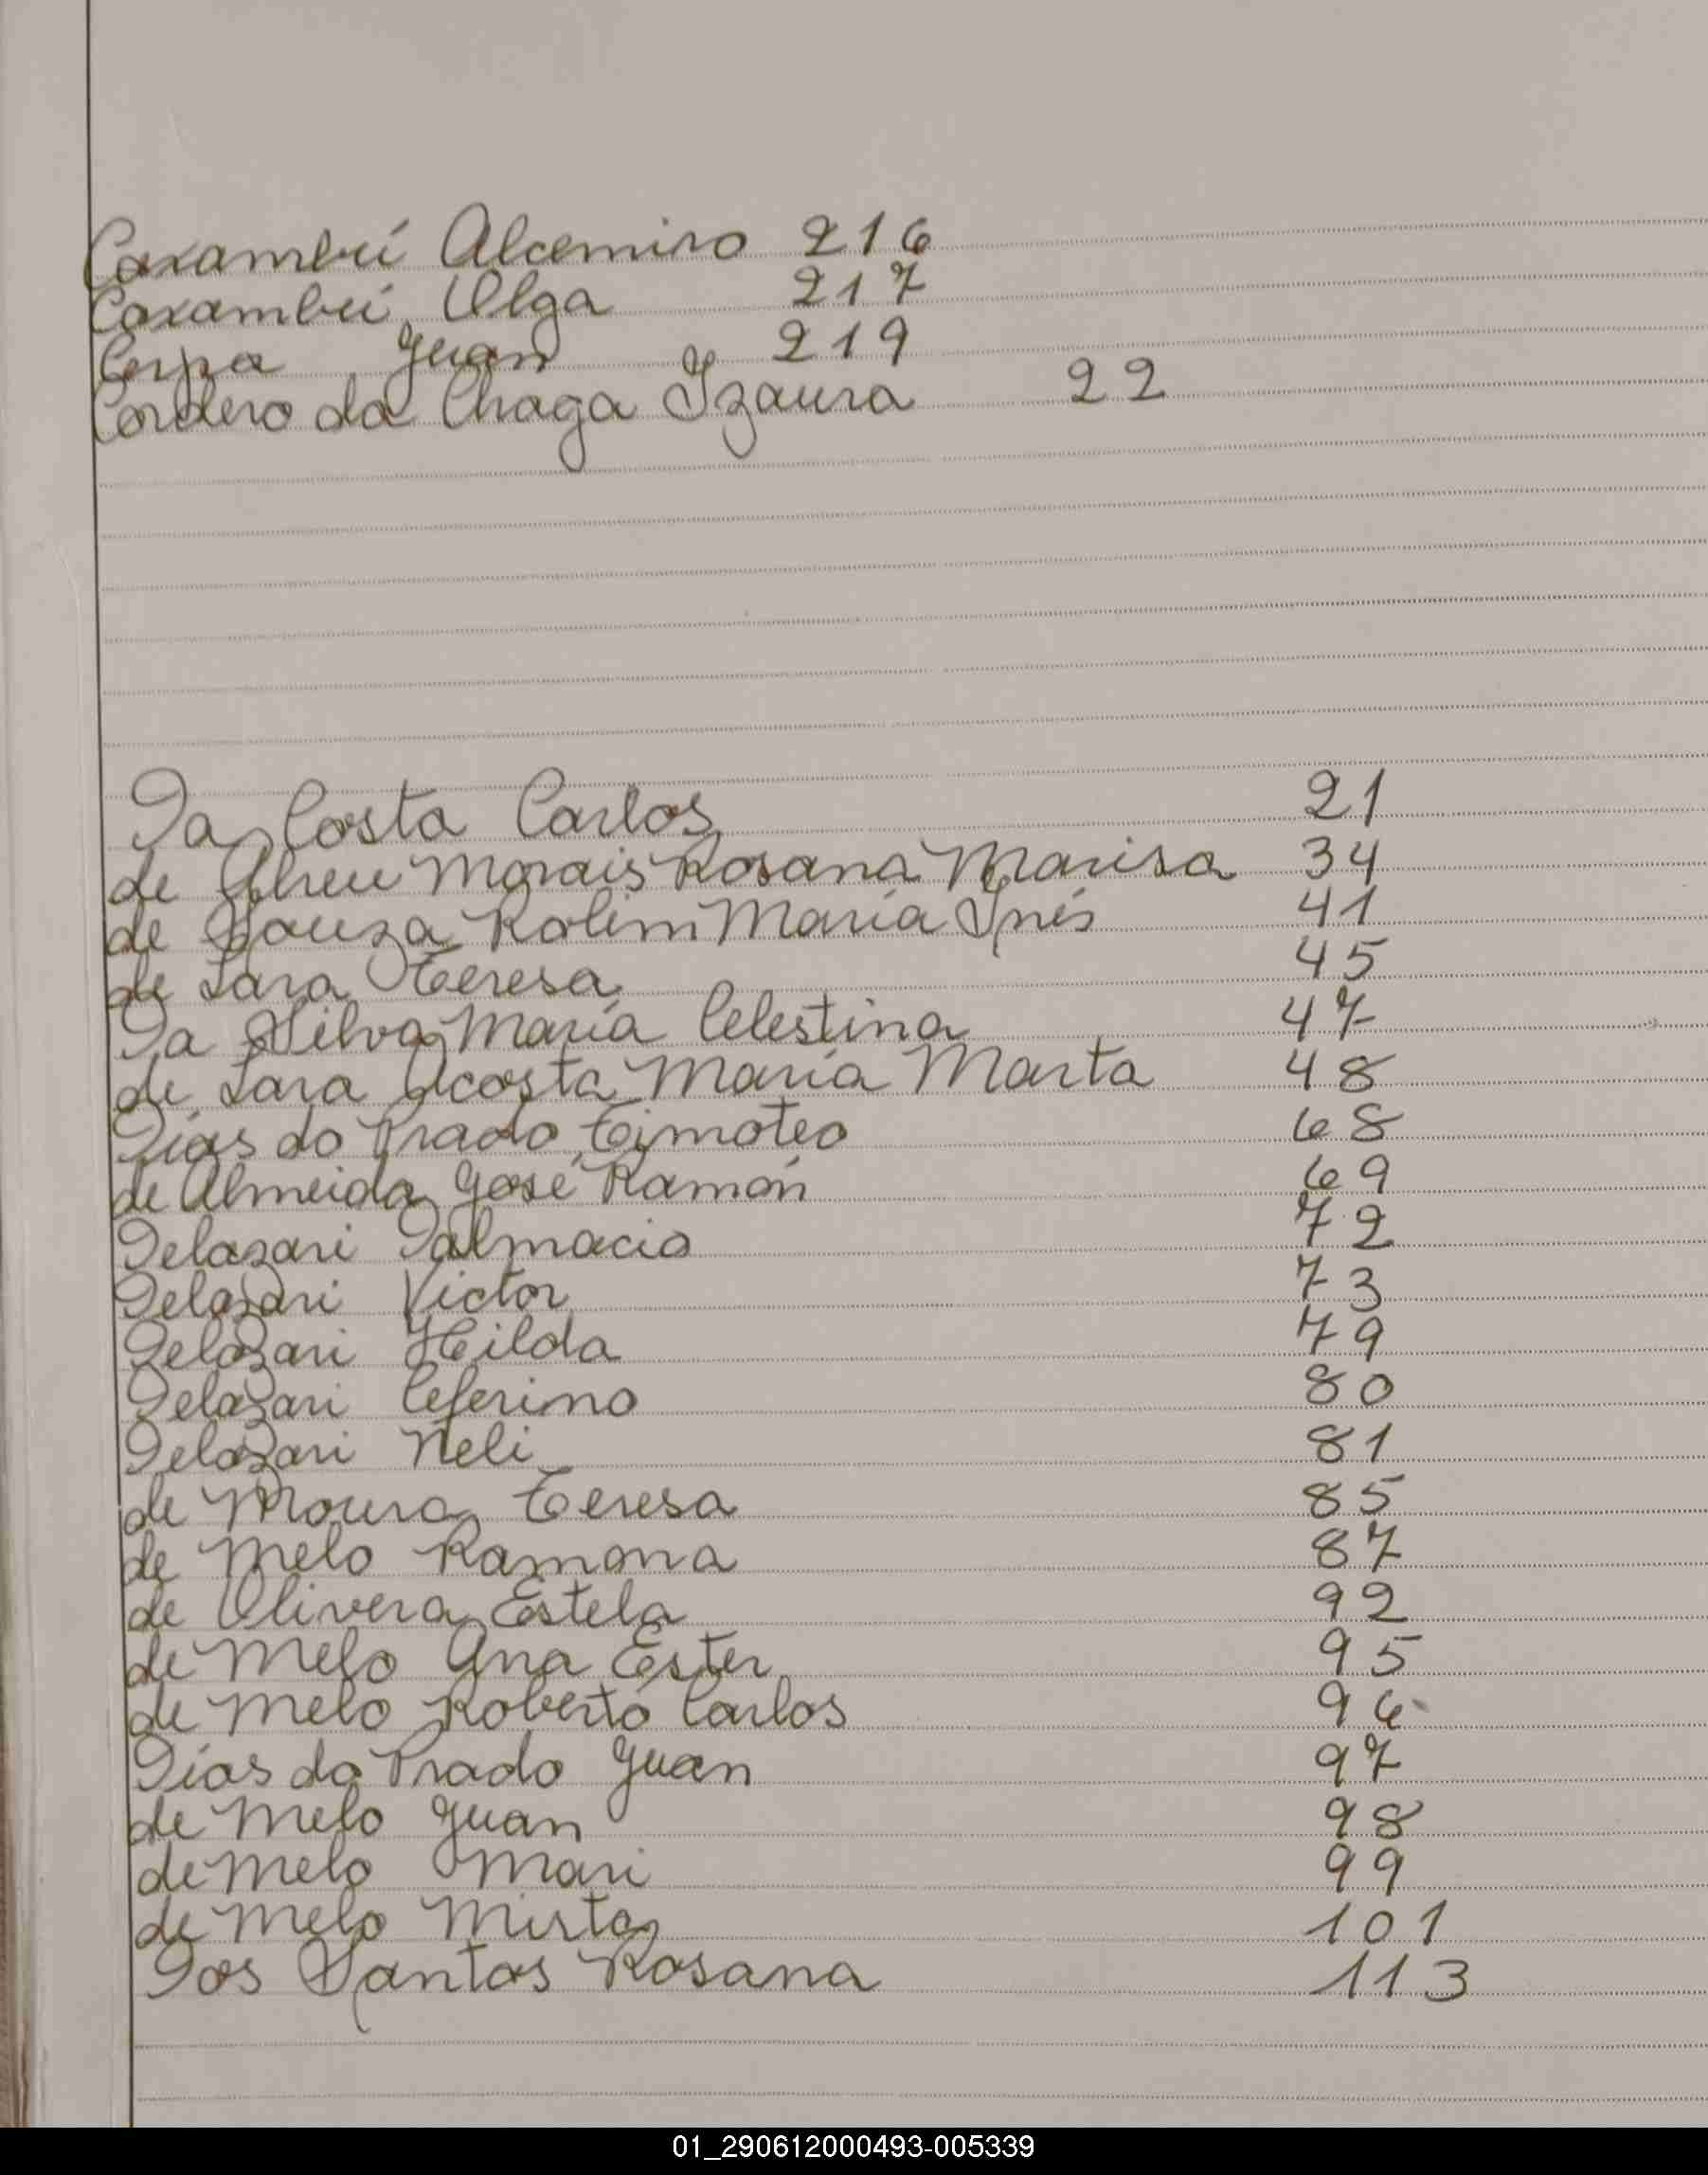 Caxambú Alcemiro 216
Caxambú Olga 217
Cerpa Juan 219
Cordero da Chaga Izaura 22
Da Costa Carlos 21
de Abreu Morais Rosana Marisa 34
de Souza Rolim María Inés 41
de Lara Teresa 45
Da Silva María Celestina 47
de Lara Acosta María Marta 48
Días do Prado Timoteo 68
de Almeida José Ramón 69
Delazari Dalmacio 72
Delazari Victor 73
Delazari Hilda 79
Delazari Ceferino 80
Delazari Neli 81
de Moura Teresa 85
de Melo Ramona 87
de Olivera Estela 92
de Melo Ana Ester 95
de Melo Roberto Carlos 96
Días do Prado Juan 97
de Melo Juan 98
de Melo Mari 99
de Melo Mirta 101
Dos Santos Rosana 113
01_290612000493-005339